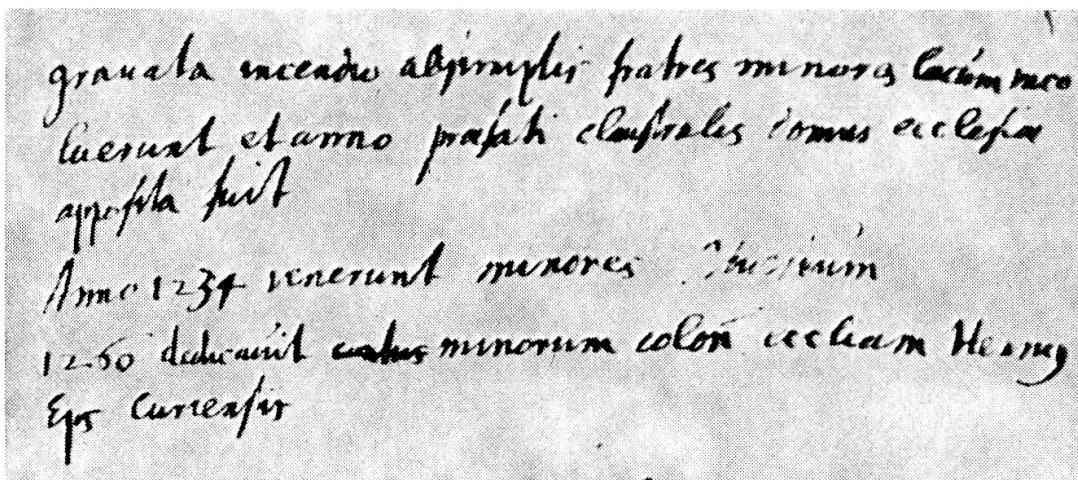 gravata incendio abjrruptis fratres minores locum inco
luerunt et anno præfati claustralis domus ecclesiæ
apposita fuit
Anno 1234 venerunt minores
1260 dedicavit minorum colon eccliam Henrig
Eps Curiensis